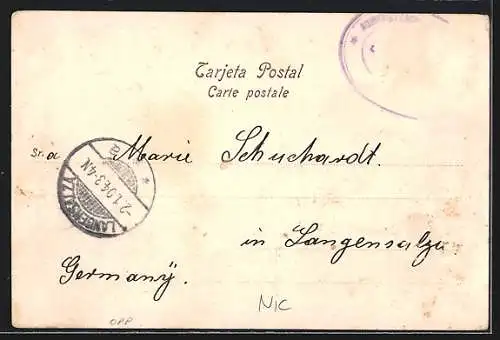 Tarjeta Postal
Carte postale
Sr. a Marie Schuchardt.
in Langensalza
Germany.
-2.1.04.3-4N
LANGENSALZA
NIC
OPP